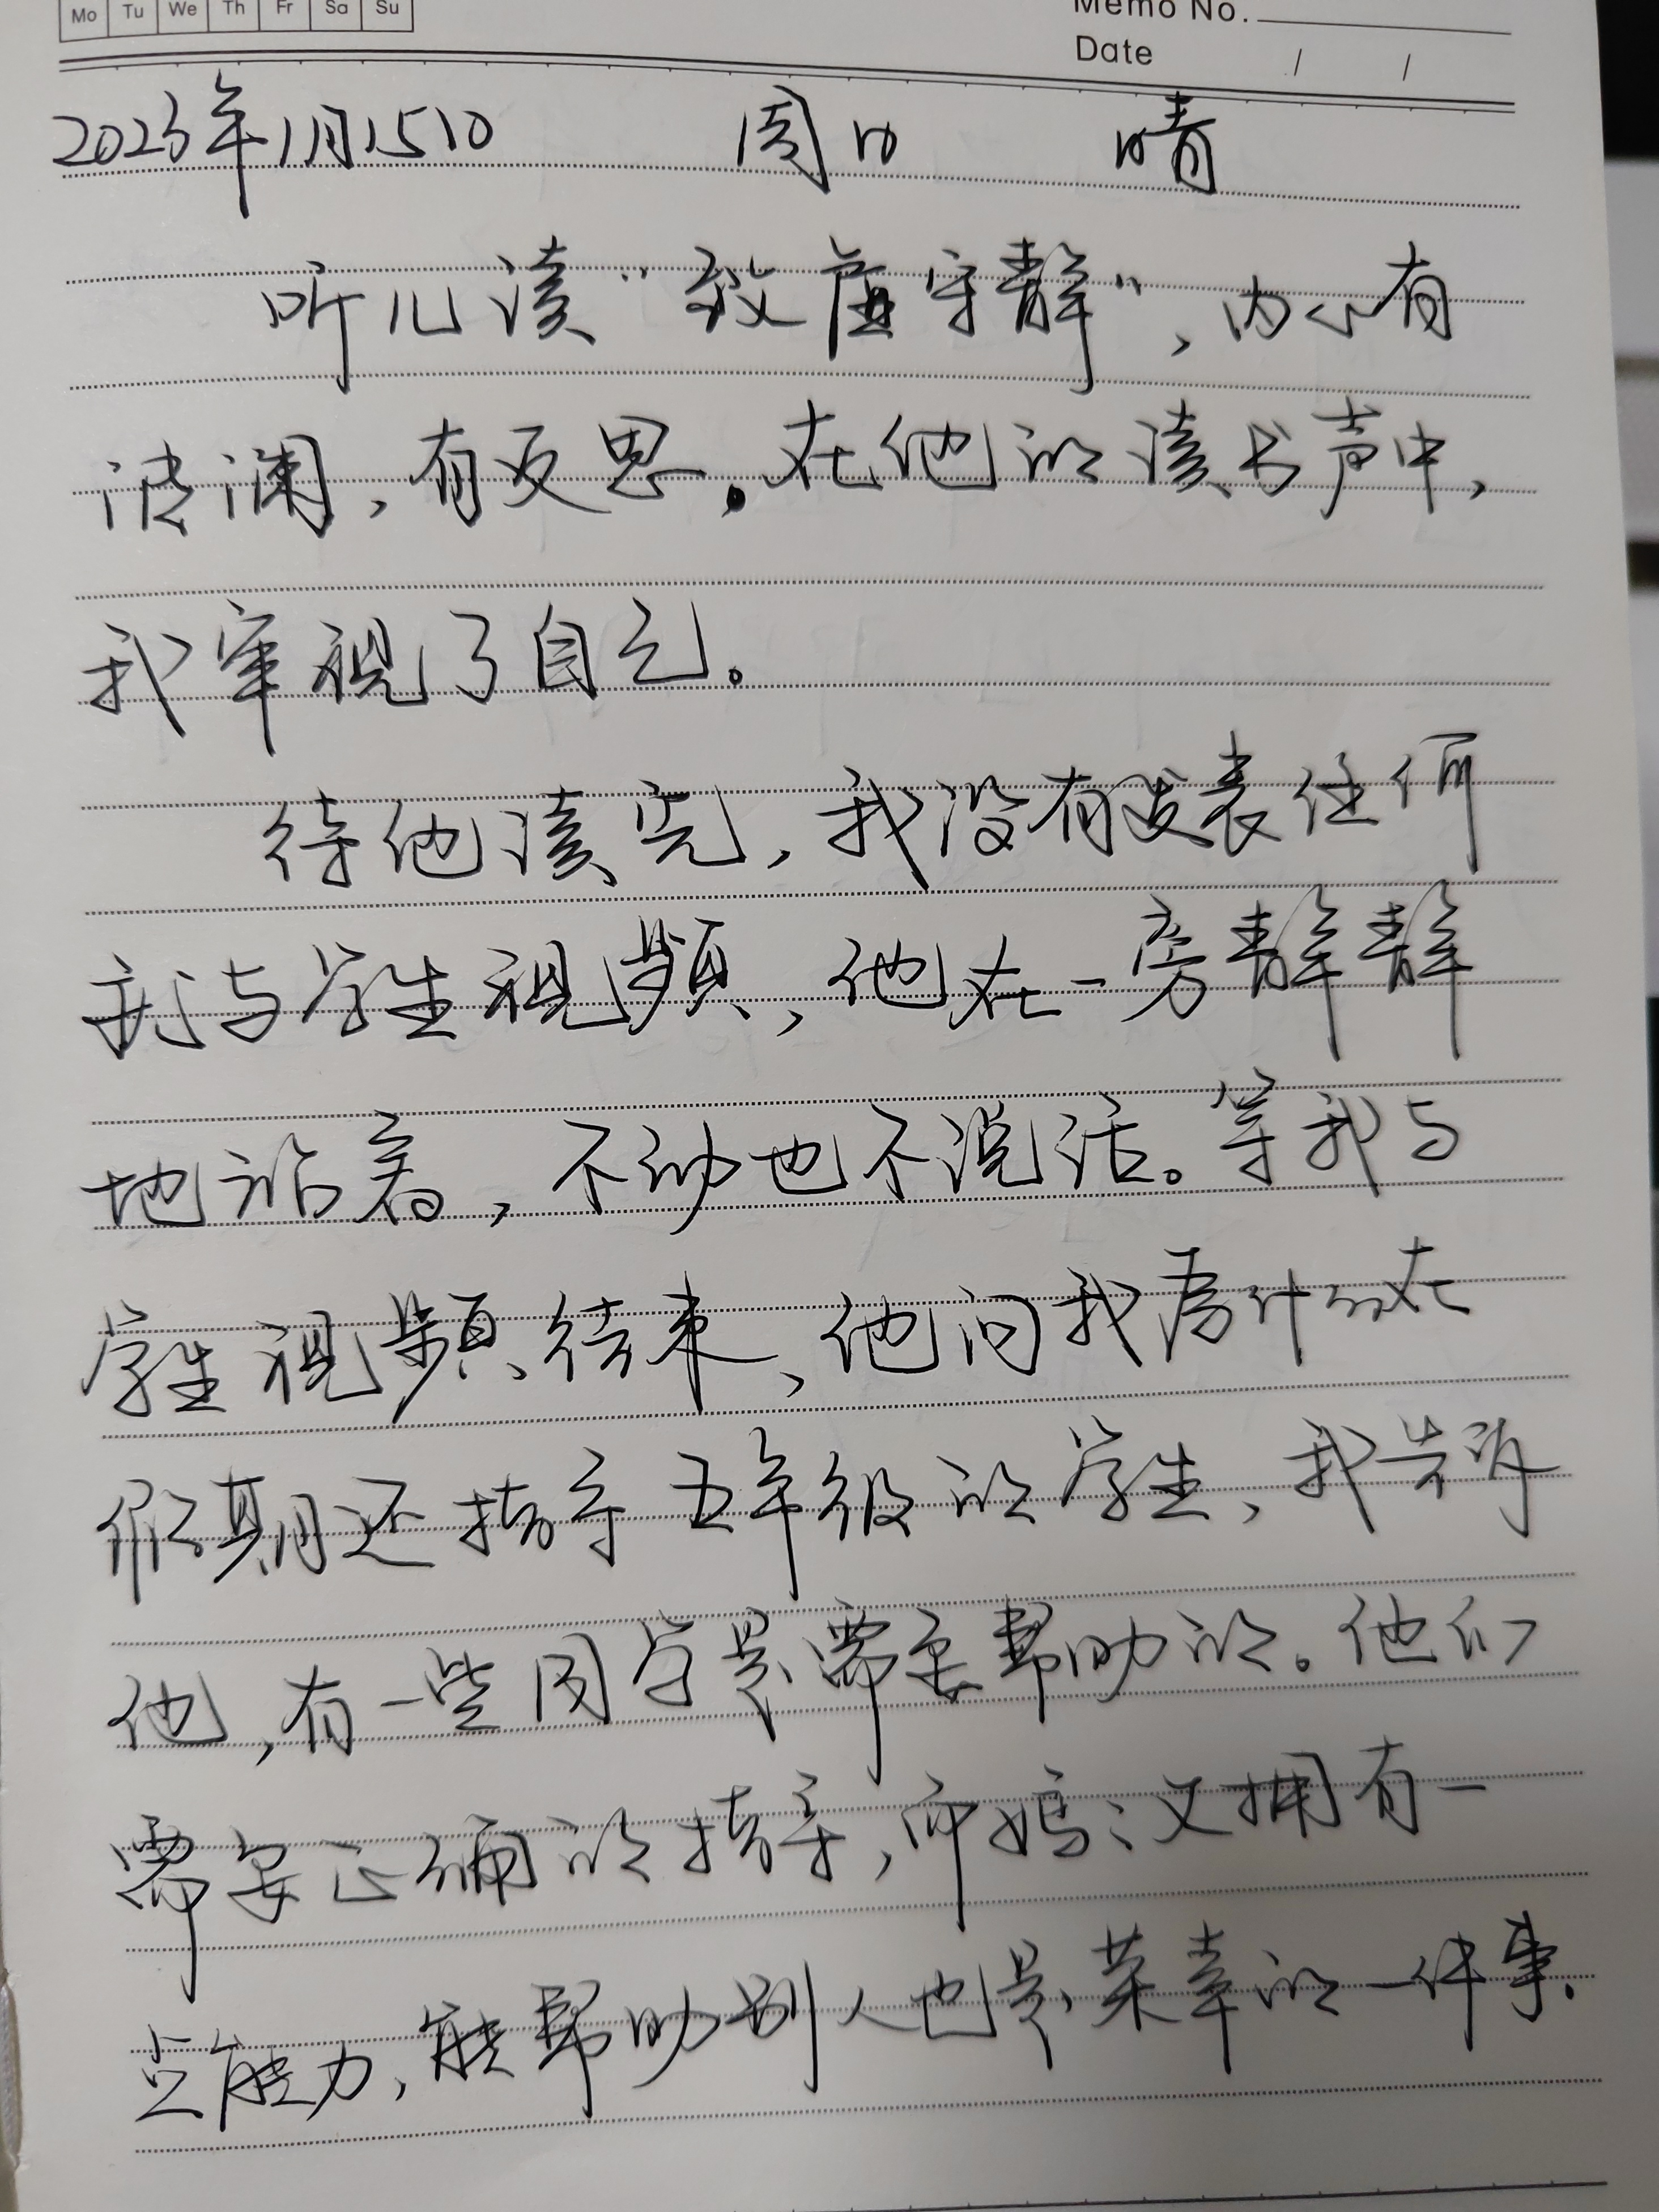 Mo Tu We Th Fr Sa Su
Memo No.
Date / /
2023年1月15日 周日 晴
听儿读“致虚守静”，内心有
波澜，有反思。在他的读书声中，
我审视了自己。
待他读完，我没有发表任何
我与学生视频，他在一旁静静
地站着，不动也不说话。等我与
学生视频结束，他问我为什么在
假期还指导五年级的学生，我告诉
他，有一些同学是需要帮助的。他们
需要正确的指导，而妈妈又拥有一
点能力，能帮助别人也是荣幸的一件事.